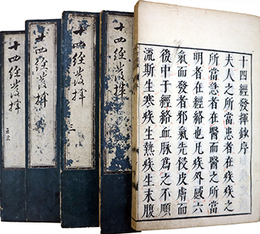 十四經發揮鈔序
夫人之所當患者在疾而人
所當急者在醫而醫之所當
明者在經絡也凡疾外感六
氣而發者邪氣先侵皮膚而
後中于經絡血脉爲之不順
流斯生寒疾生熱疾生末腹
十四經發揮
十四經發揮
十四經發揮
十四經發揮